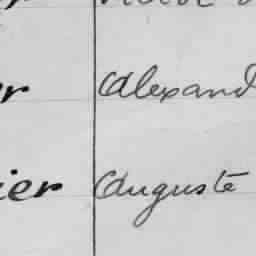 r Alexand
ier Auguste